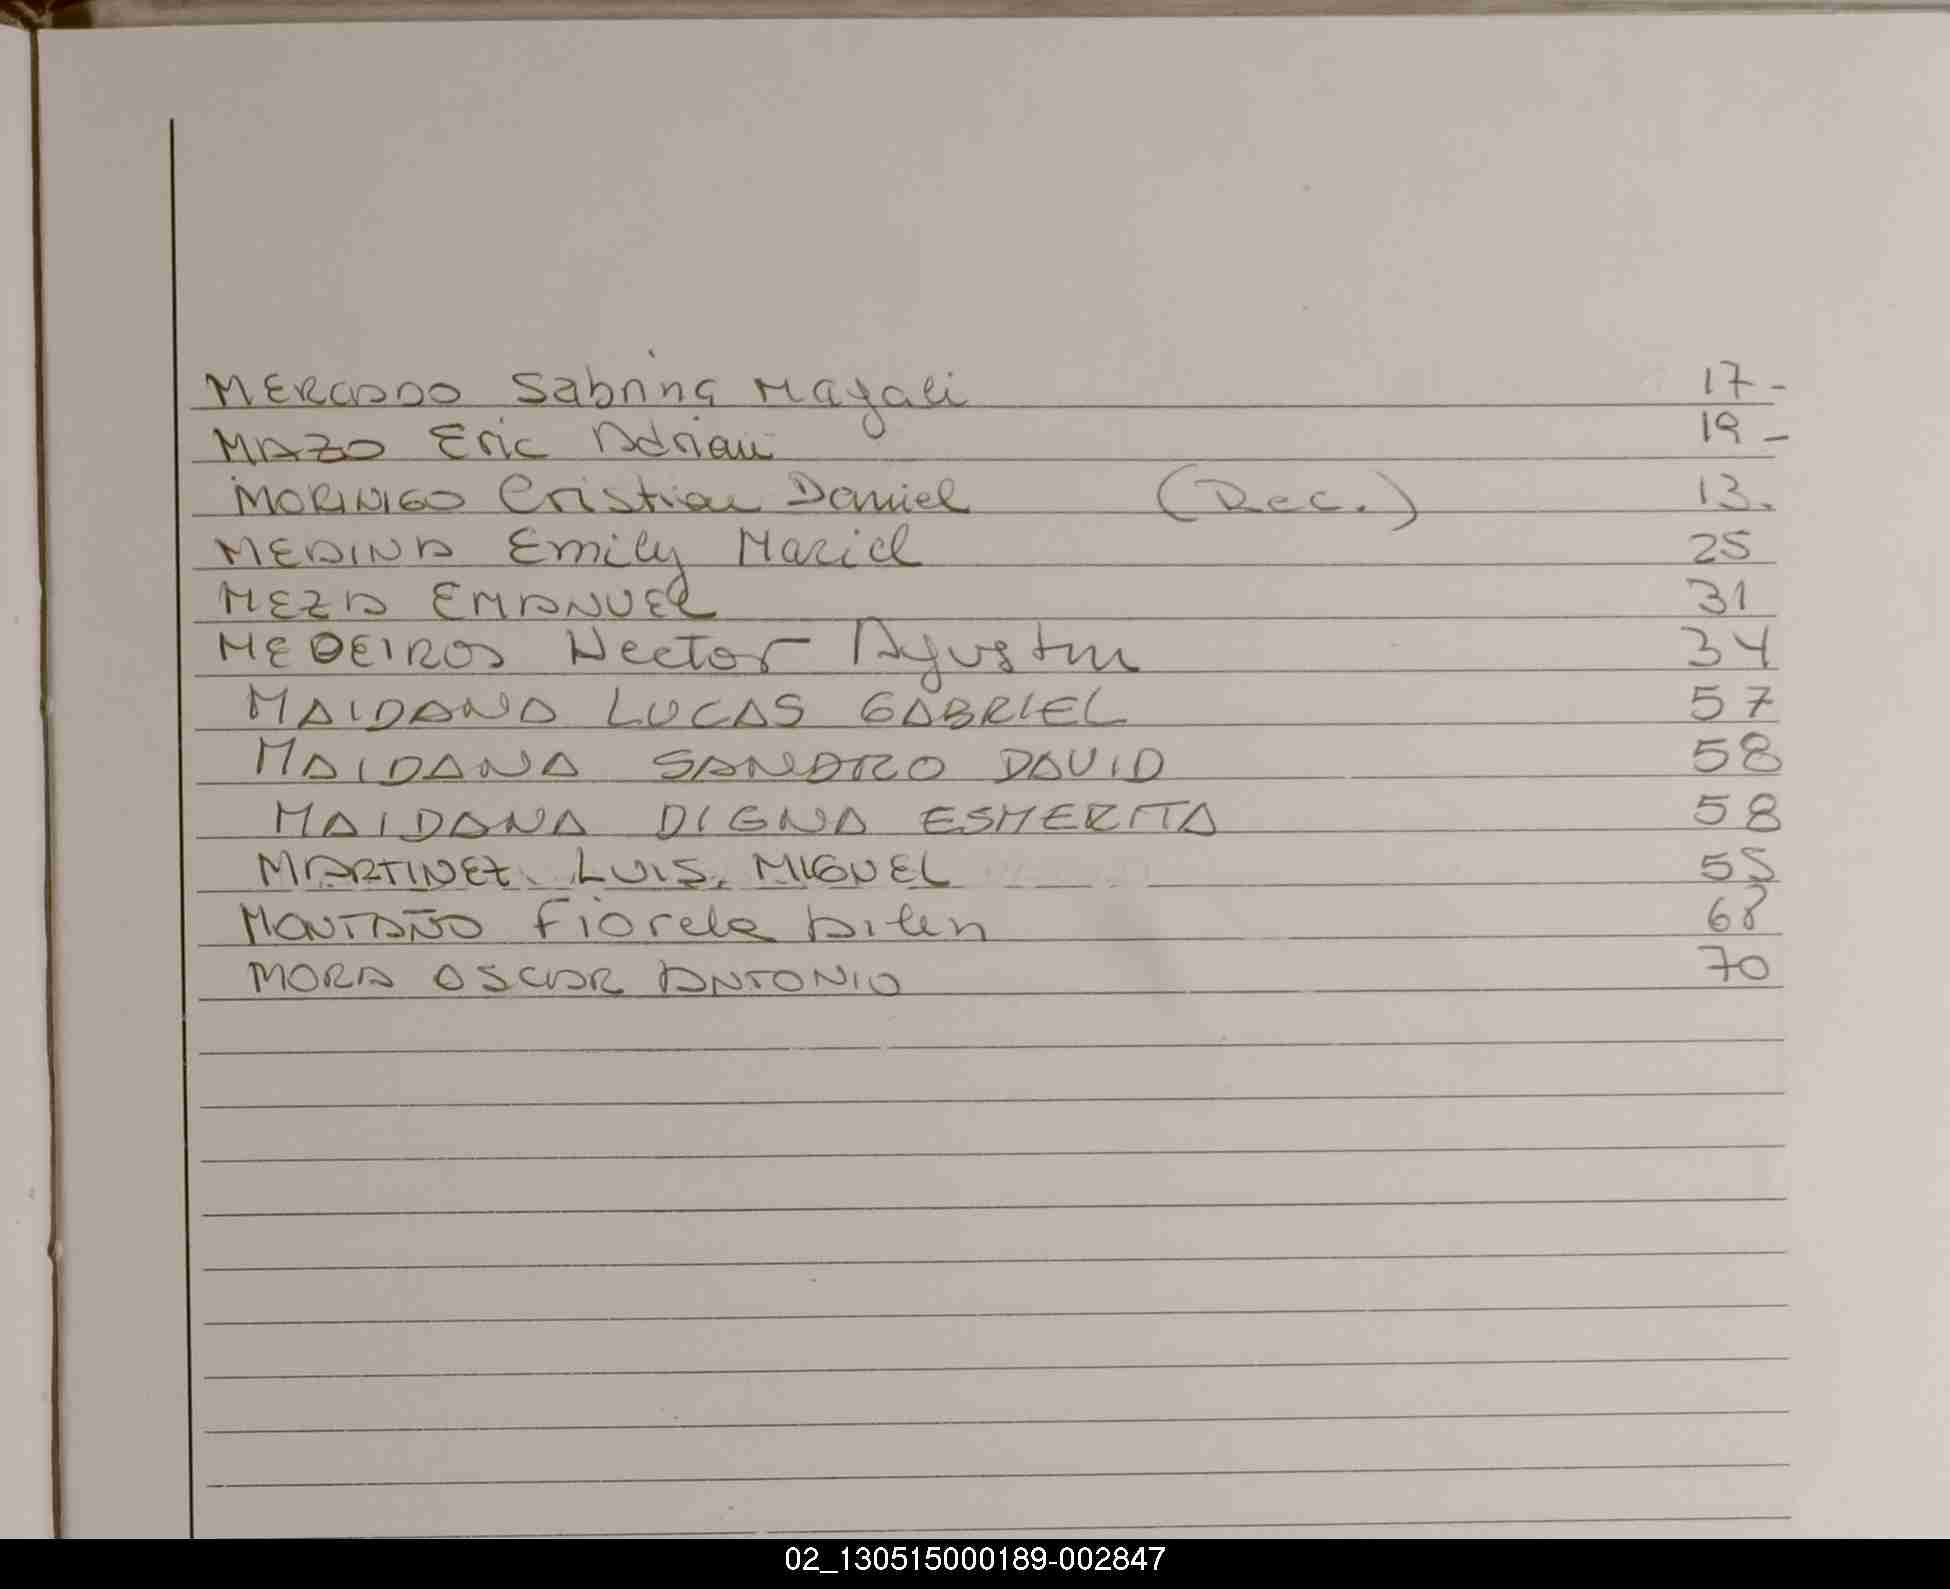 MERCADO Sabrina Magali 17-
MAZO Eric Adrian 19-
MORINIGO Cristian Daniel (Rec.) 13.
MEDINA Emily Mariel 25
MEZA EMANUEL 31
MEDEIROS Hector Agustin 34
MAIDANA LUCAS GABRIEL 57
MAIDANA SANDRO DAVID 58
MAIDANA DIGNA ESMERITA 58
MARTINEZ. LUIS. MIGUEL 55
MONTAÑO Fiorela Ailen 68
MORA OSCAR ANTONIO 70
02_130515000189-002847